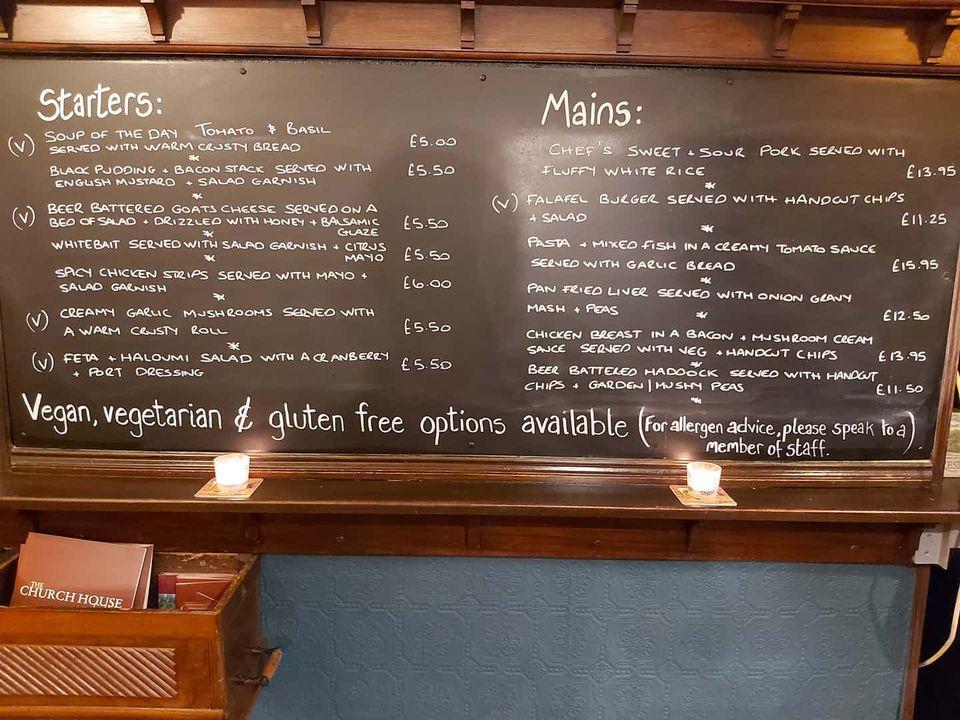 Starters:
(V) SOUP OF THE DAY TOMATO & BASIL
SERVED WITH WARM CRUSTY BREAD £5.00
*
BLACK PUDDING + BACON STACK SERVED WITH £5.50
ENGLISH MUSTARD + SALAD GARNISH
*
(V) BEER BATTERED GOATS CHEESE SERVED ON A
BED OF SALAD + DRIZZLED WITH HONEY + BALSAMIC £5.50
GLAZE
*
WHITEBAIT SERVED WITH SALAD GARNISH + CITRUS £5.50
MAYO
*
SPICY CHICKEN STRIPS SERVED WITH MAYO + £6.00
SALAD GARNISH
*
(V) CREAMY GARLIC MUSHROOMS SERVED WITH
A WARM CRUSTY ROLL £5.50
*
(V) FETA + HALOUMI SALAD WITH A CRANBERRY £5.50
+ PORT DRESSING
Mains:
CHEF'S SWEET + SOUR PORK SERVED WITH
FLUFFY WHITE RICE £13.95
*
(V) FALAFEL BURGER SERVED WITH HANDCUT CHIPS
+ SALAD £11.25
*
PASTA + MIXED FISH IN A CREAMY TOMATO SAUCE
SERVED WITH GARLIC BREAD £15.95
*
PAN FRIED LIVER SERVED WITH ONION GRAVY
MASH + PEAS £12.50
*
CHICKEN BREAST IN A BACON + MUSHROOM CREAM
SAUCE SERVED WITH VEG + HANDCUT CHIPS £13.95
*
BEER BATTERED HADDOCK SERVED WITH HANDCUT
CHIPS + GARDEN/MUSHY PEAS £11.50
*
Vegan, vegetarian & gluten free options available (For allergen advice, please speak to a
member of staff.)
THE
CHURCH HOUSE